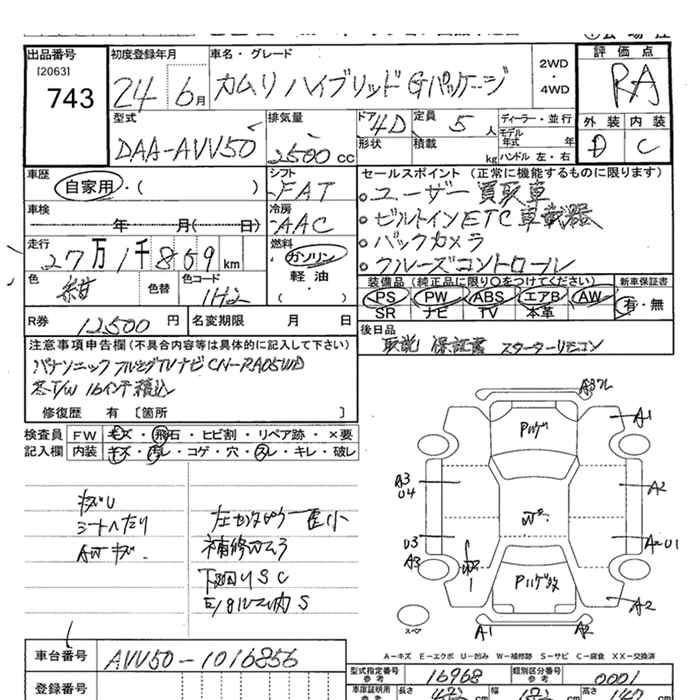 出品番号
[2063]
743
初度登録年月
24 6月
車名・グレード
カムリ ハイブリッド Gパッケージ
2WD
・
4WD
評価点
RA
外装 内装
D C
型式
DAA-AVV50
排気量
2500 cc
ドア 4D
形状
定員 5 人
積載 kg
ディーラー・並行
モデル年式 年
ハンドル 左・右
車歴
自家用・( )
シフト
FAT
車検
年 月( 日)
冷房
AAC
走行
27万1千859 km
燃料
ガソリン
軽油
( )
色
紺
色替
色コード
1H2
セールスポイント (正常に機能するものに限ります)
。ユーザー買取車
。ビルトインETC車載器
。バックカメラ
。クルーズコントロール
装備品 (純正品に限り○をつけてください)
PS PW ABS エアB AW
SR ナビ TV 本革
新車保証書
有・無
R券 12500 円
名変期限 月 日
後日品
取説 保証書 スターターリモコン
注意事項申告欄(不具合内容等は具体的に記入して下さい)
パナソニック フルセグTVナビ CN-RA05WD
冬T/W 16インチ積込
修復歴 有 [箇所 ]
検査員 FW キズ・飛石・ヒビ割・リペア跡・×要
記入欄 内装 キズ・汚レ・コゲ・穴・スレ・キレ・破レ
キズU
シートヘたり
AWキズ.
補修ムラ
下回りSC
A1
A3
U4
A2
U3
A3
A2
A1
A2
スペア
A-キズ E-エクボ U-凹み W-補修跡 S-サビ C-腐食 XX-交換済
車台番号 AVV50-1016856
登録番号
型式指定番号 参考 16968
類別区分番号 参考 0001
車庫証明用 参考 長さ cm 幅 cm 高さ cm